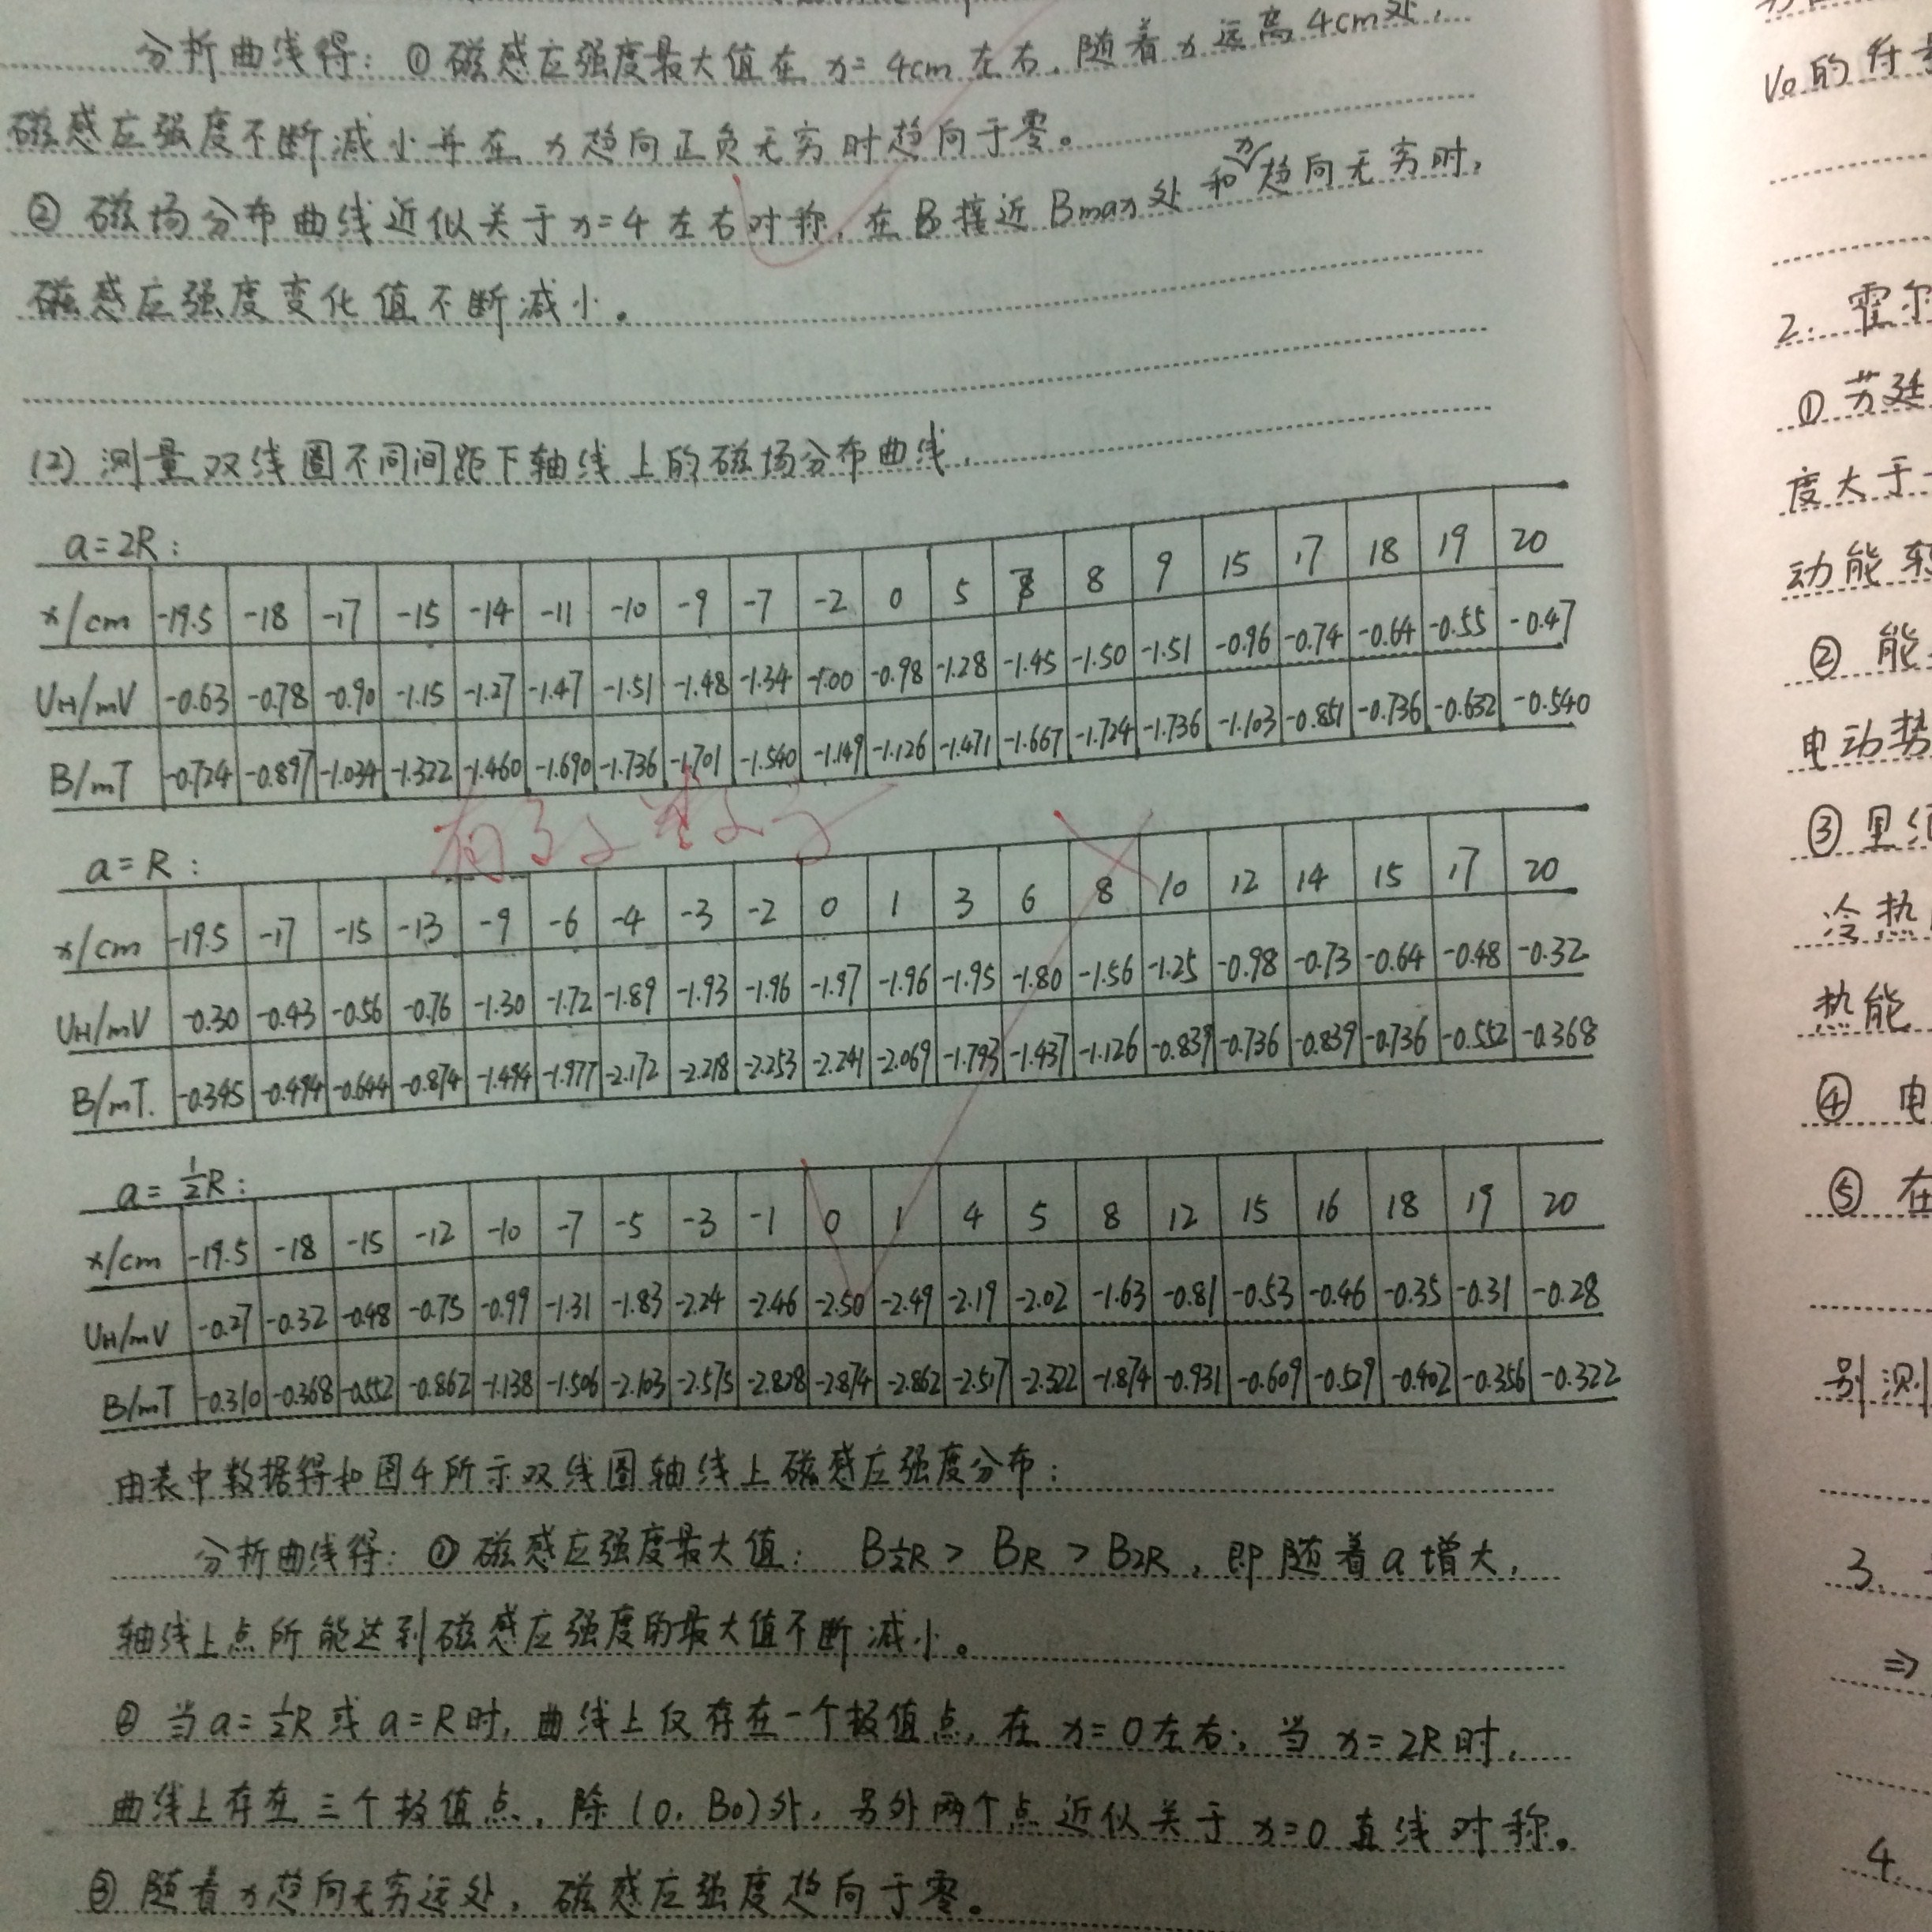 分析曲线得：① 磁感应强度最大值在 x=4cm 左右，随着 x 远离 4cm处，
磁感应强度不断减小并在 x 趋向正负无穷时趋向于零。
② 磁场分布曲线近似关于 x=4 左右对称，在 B 接近 Bmax 处和 x 趋向无穷时，
磁感应强度变化值不断减小。
(2) 测量双线圈不同间距下轴线上的磁场分布曲线.
a=2R：
x/cm -19.5 -18 -17 -15 -14 -11 -10 -9 -7 -2 0 5 8 9 15 17 18 19 20
UH/mV -0.63 -0.78 -0.90 -1.15 -1.27 -1.47 -1.51 -1.48 -1.34 -1.00 -0.98 -1.28 -1.45 -1.50 -1.51 -0.96 -0.74 -0.64 -0.55 -0.47
B/mT -0.724 -0.897 -1.034 -1.322 -1.460 -1.690 -1.736 -1.701 -1.540 -1.149 -1.126 -1.471 -1.667 -1.724 -1.736 -1.103 -0.851 -0.736 -0.632 -0.540
a=R：
x/cm -19.5 -17 -15 -13 -9 -6 -4 -3 -2 0 1 3 6 8 10 12 14 15 17 20
UH/mV -0.30 -0.43 -0.56 -0.76 -1.30 -1.72 -1.89 -1.93 -1.96 -1.97 -1.96 -1.95 -1.80 -1.56 -1.25 -0.98 -0.73 -0.64 -0.48 -0.32
B/mT. -0.345 -0.494 -0.644 -0.874 -1.494 -1.977 -2.172 -2.218 -2.253 -2.241 -2.069 -1.793 -1.437 -1.126 -0.839 -0.736 -0.839 -0.736 -0.552 -0.368
a=½R：
x/cm -19.5 -18 -15 -12 -10 -7 -5 -3 -1 0 1 4 5 8 12 15 16 18 19 20
UH/mV -0.27 -0.32 -0.48 -0.75 -0.99 -1.31 -1.83 -2.24 -2.46 -2.50 -2.49 -2.19 -2.02 -1.63 -0.81 -0.53 -0.46 -0.35 -0.31 -0.28
B/mT -0.310 -0.368 -0.552 -0.862 -1.138 -1.506 -2.103 -2.575 -2.828 -2.874 -2.862 -2.517 -2.322 -1.874 -0.931 -0.609 -0.529 -0.402 -0.356 -0.322
由表中数据得如图4所示双线圈轴线上磁感应强度分布：
分析曲线得：① 磁感应强度最大值： B½R > BR > B2R，即随着a增大，
轴线上点所能达到磁感应强度的最大值不断减小。
② 当 a=½R 或 a=R时，曲线上仅存在一个极值点，在 x=0左右；当 x=2R时，
曲线上存在三个极值点，除 (0, B0)外，另外两个点近似关于 x=0 直线对称。
③ 随着 x 趋向无穷远处，磁感应强度趋向于零。
V0的符
2. 霍尔
① 苏廷
度大于
动能
② 能
电动势
③ 里
冷热
热能
④ 电
⑤ 在
别测
3.
⇒
4.